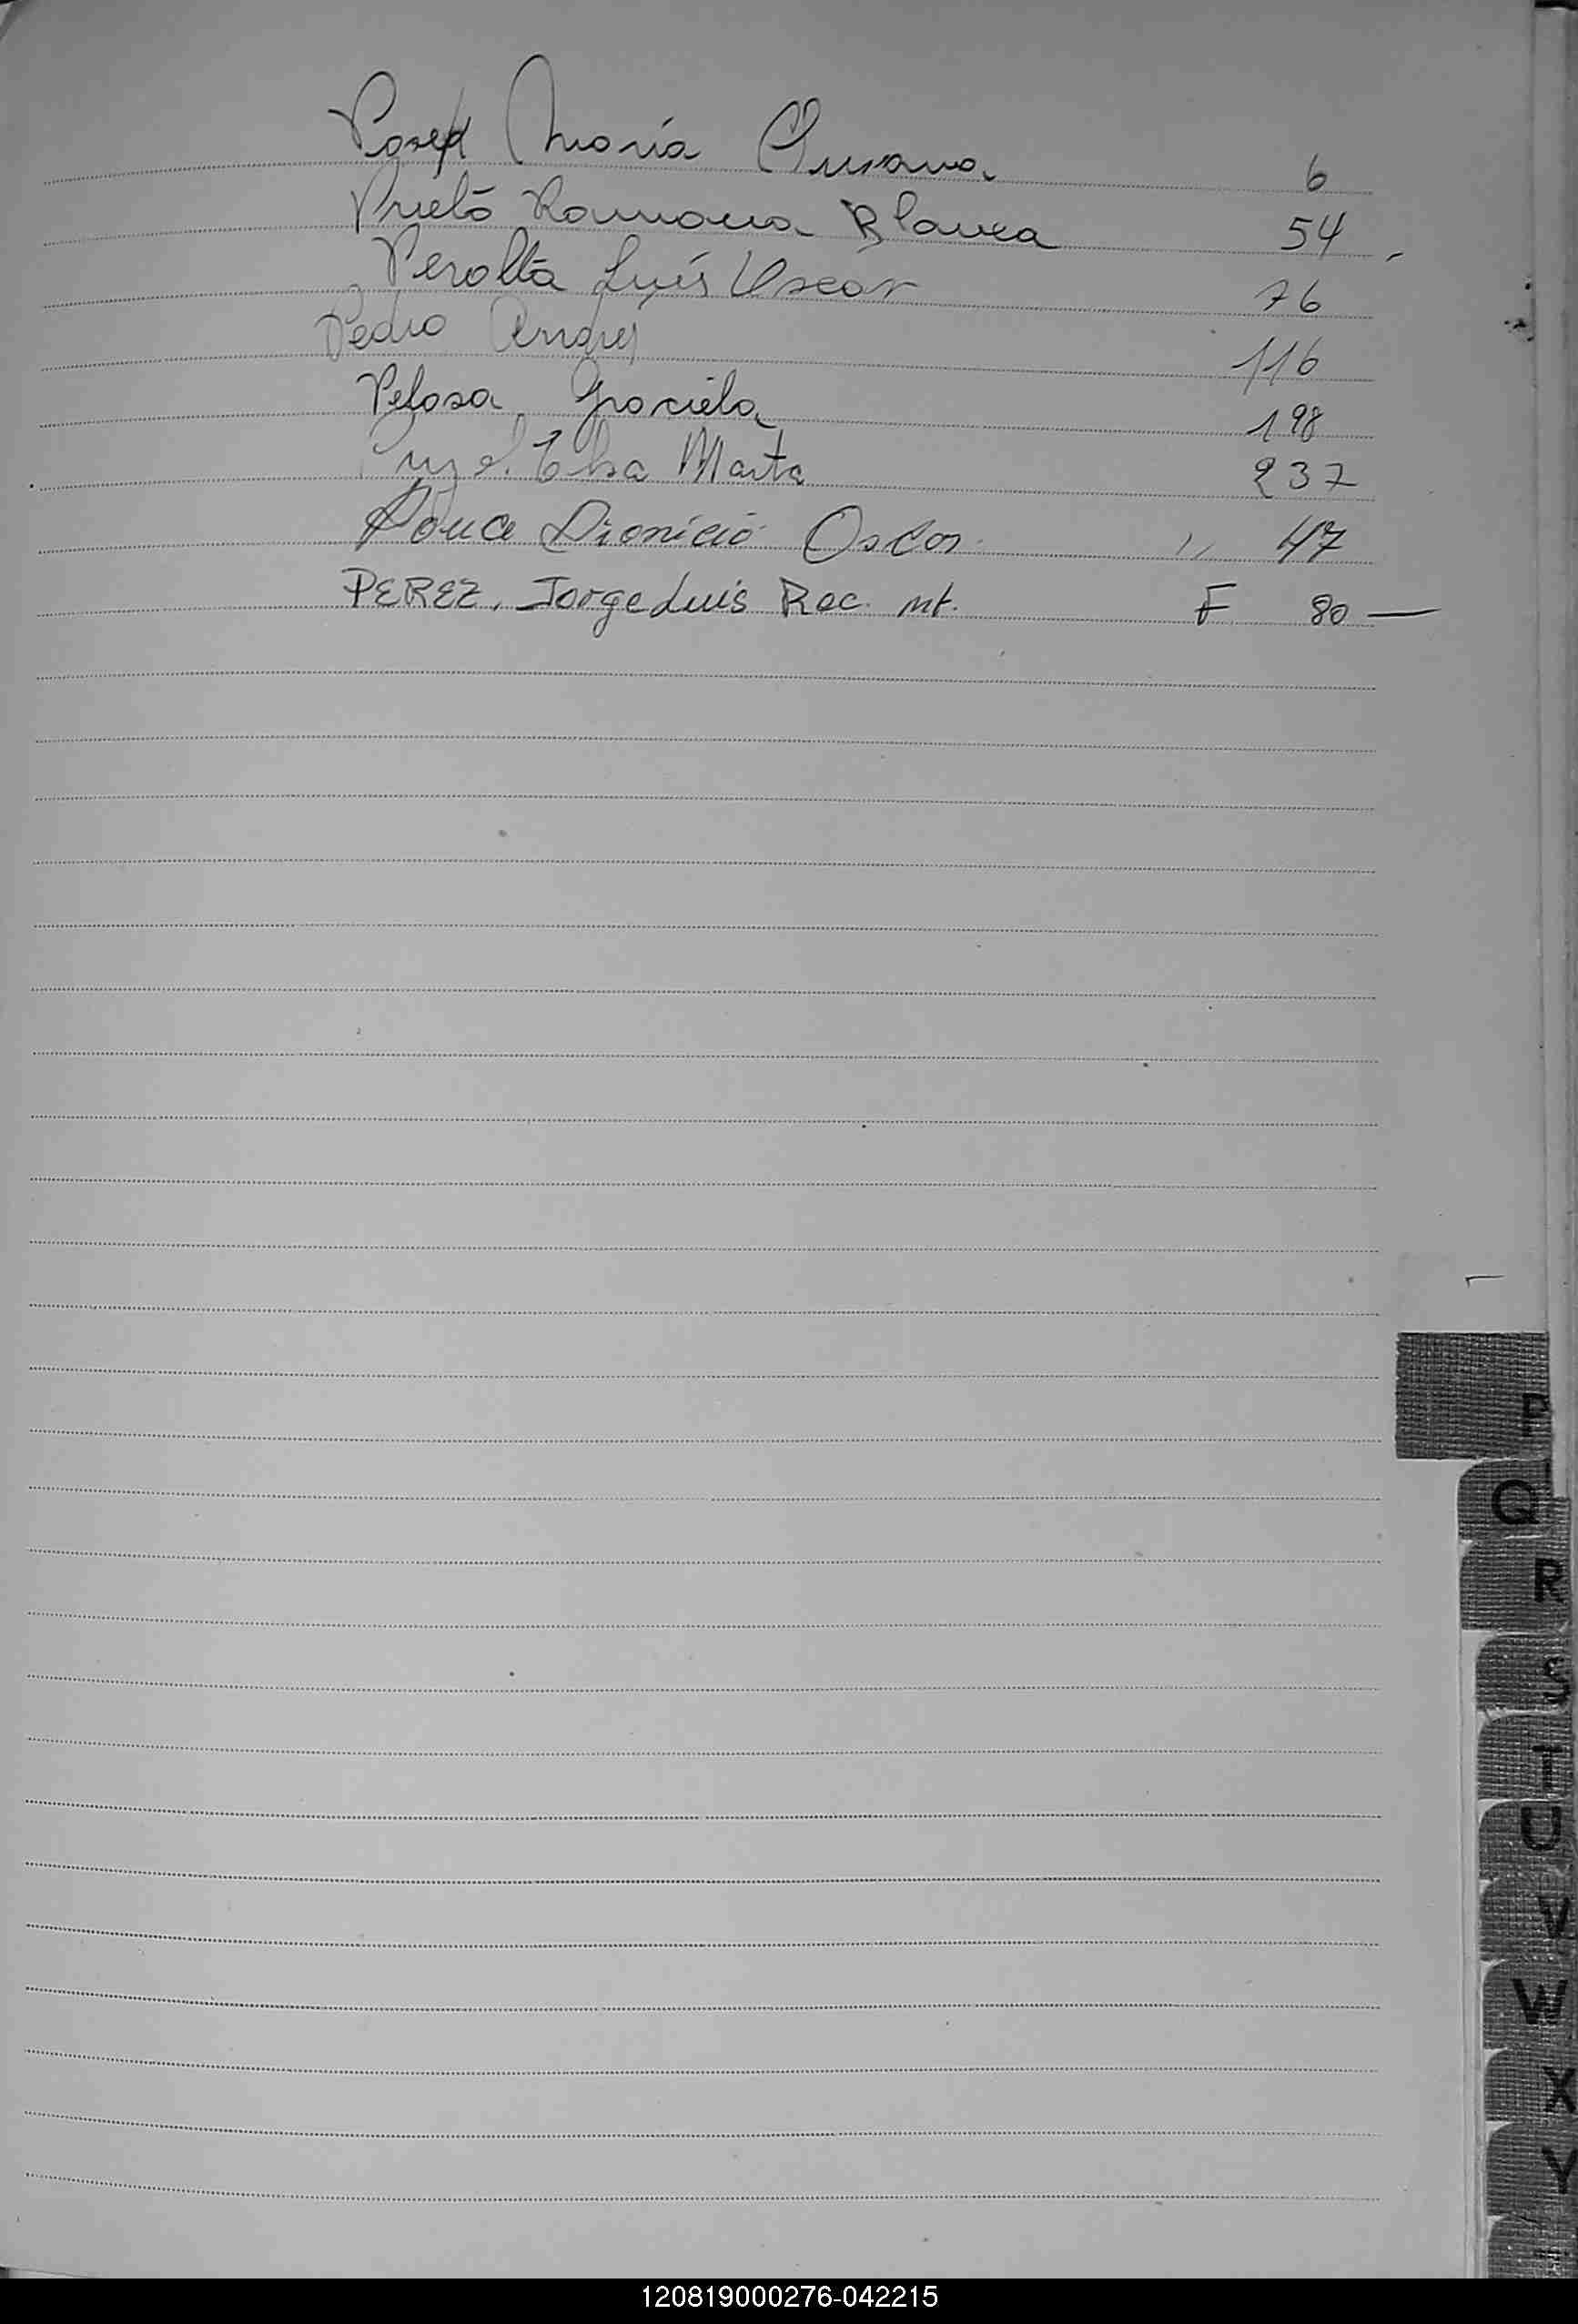 María Susana 6
Prieto Ramona Blanca 54
Peralta Luis Oscar 76
Pedro Andres 116
Pelosa Graciela 198
Elsa Marta 237
Ponce Dionicio Oscar " 47
PEREZ, Jorge Luis Rec. mt. F 80 —
P
Q
R
S
T
U
V
W
X
Y
120819000276-042215